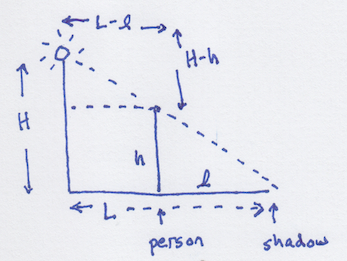 L-l
H-h
H
h
l
L
person
shadow